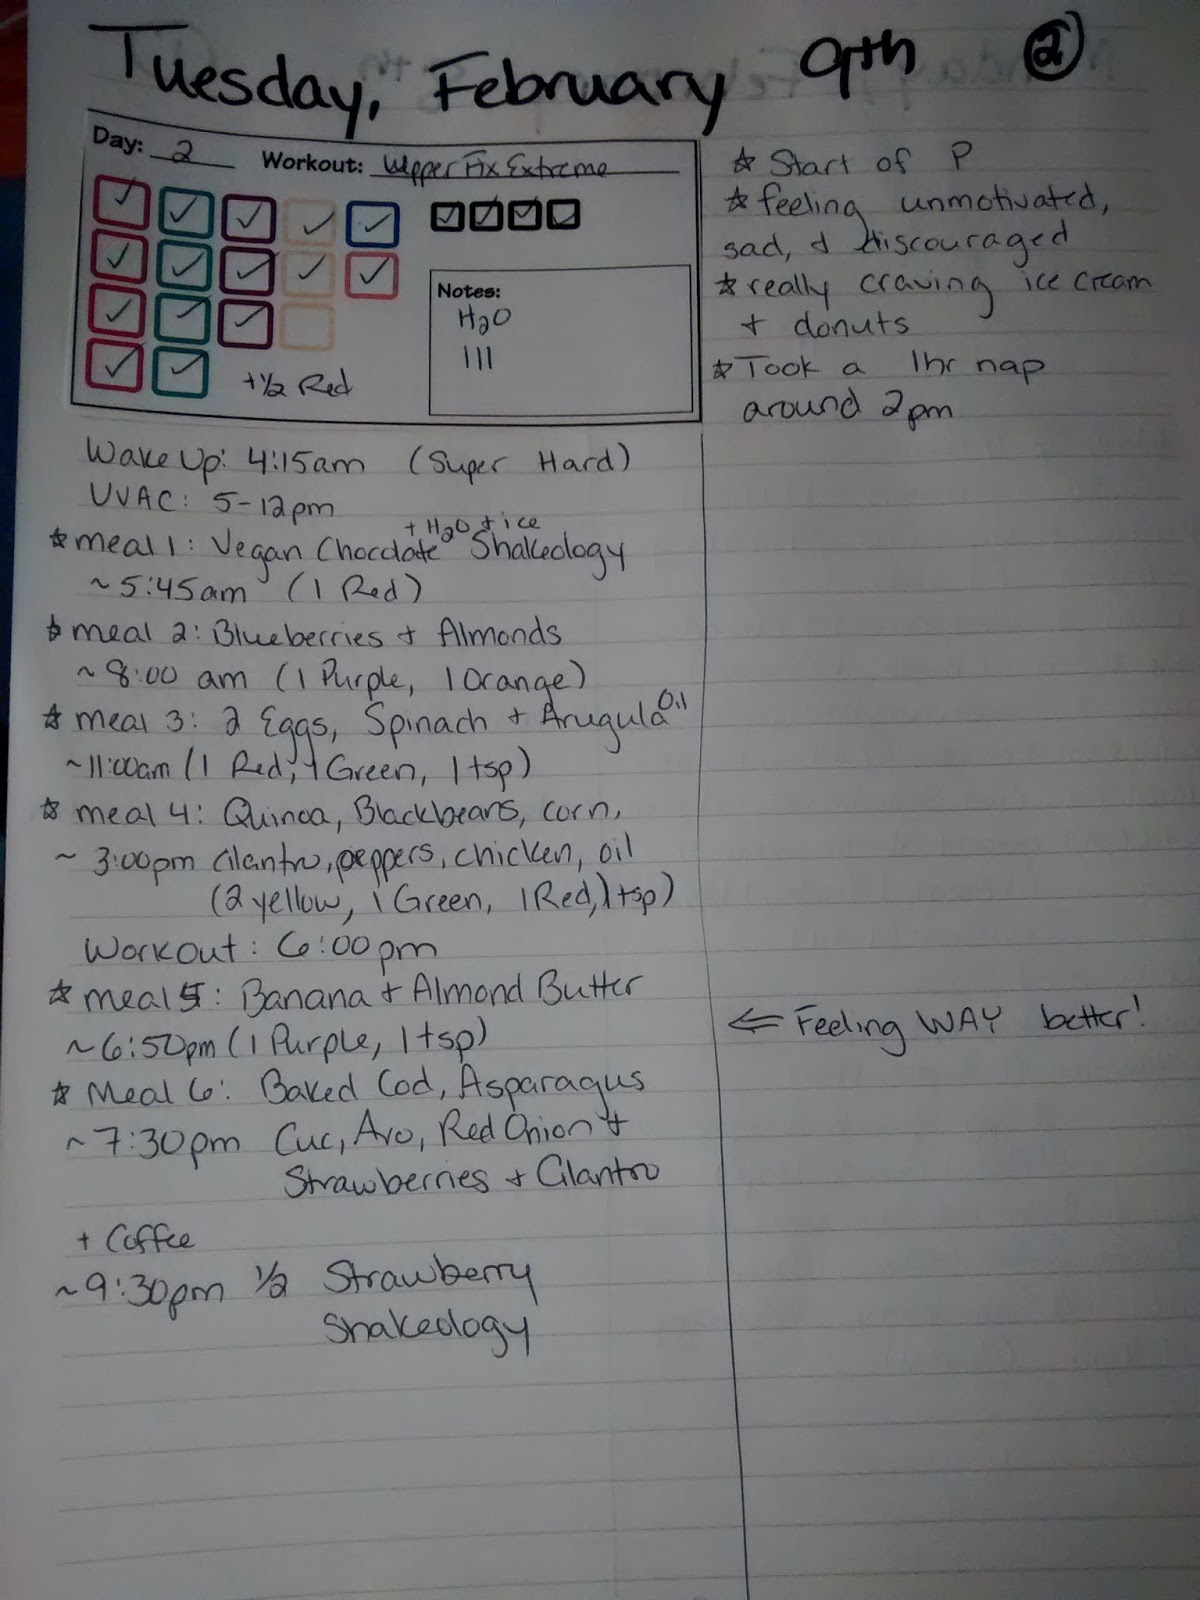 Tuesday, February 9th 2
Day: 2 Workout: Upper Fix Extreme
Notes:
H2O
III
+1/2 Red
☆ Start of P
☆ feeling unmotivated,
sad, & discouraged
☆ really craving ice cream
+ donuts
☆ Took a 1hr nap
around 2pm
Wake Up: 4:15am (Super Hard)
UVAC: 5-12pm
+ H2O + ice
☆ meal 1: Vegan Chocolate Shakeology
~5:45am (1 Red)
☆ meal 2: Blueberries + Almonds
~8:00 am (1 Purple, 1 Orange)
☆ meal 3: 2 Eggs, Spinach + Arugula Oil
~11:00am (1 Red, 1 Green, 1 tsp)
☆ meal 4: Quinoa, Blackbeans, corn,
~ 3:00pm Cilantro, peppers, chicken, oil
(2 yellow, 1 Green, 1 Red, 1 tsp)
Workout: 6:00pm
☆ meal 5: Banana + Almond Butter
~6:50pm (1 Purple, 1 tsp)
⇐ Feeling WAY better!
☆ Meal 6: Baked Cod, Asparagus
~7:30pm Cuc, Avo, Red Onion +
Strawberries + Cilantro
+ Coffee
~9:30pm 1/2 Strawberry
Shakeology